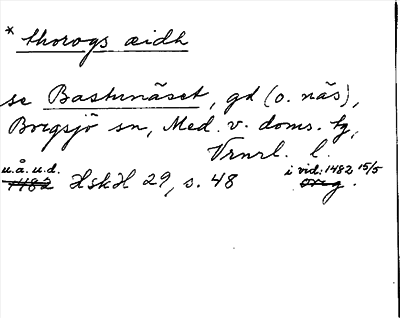 * thorogs æidh
se Bastunäset, gd (o. näs),
Borgsjö sn, Med. v. doms. tg,
Vrnrl. l.
u.å.u.d. i vid: 1482 15/5
1482 HskH 29, s. 48 orig.